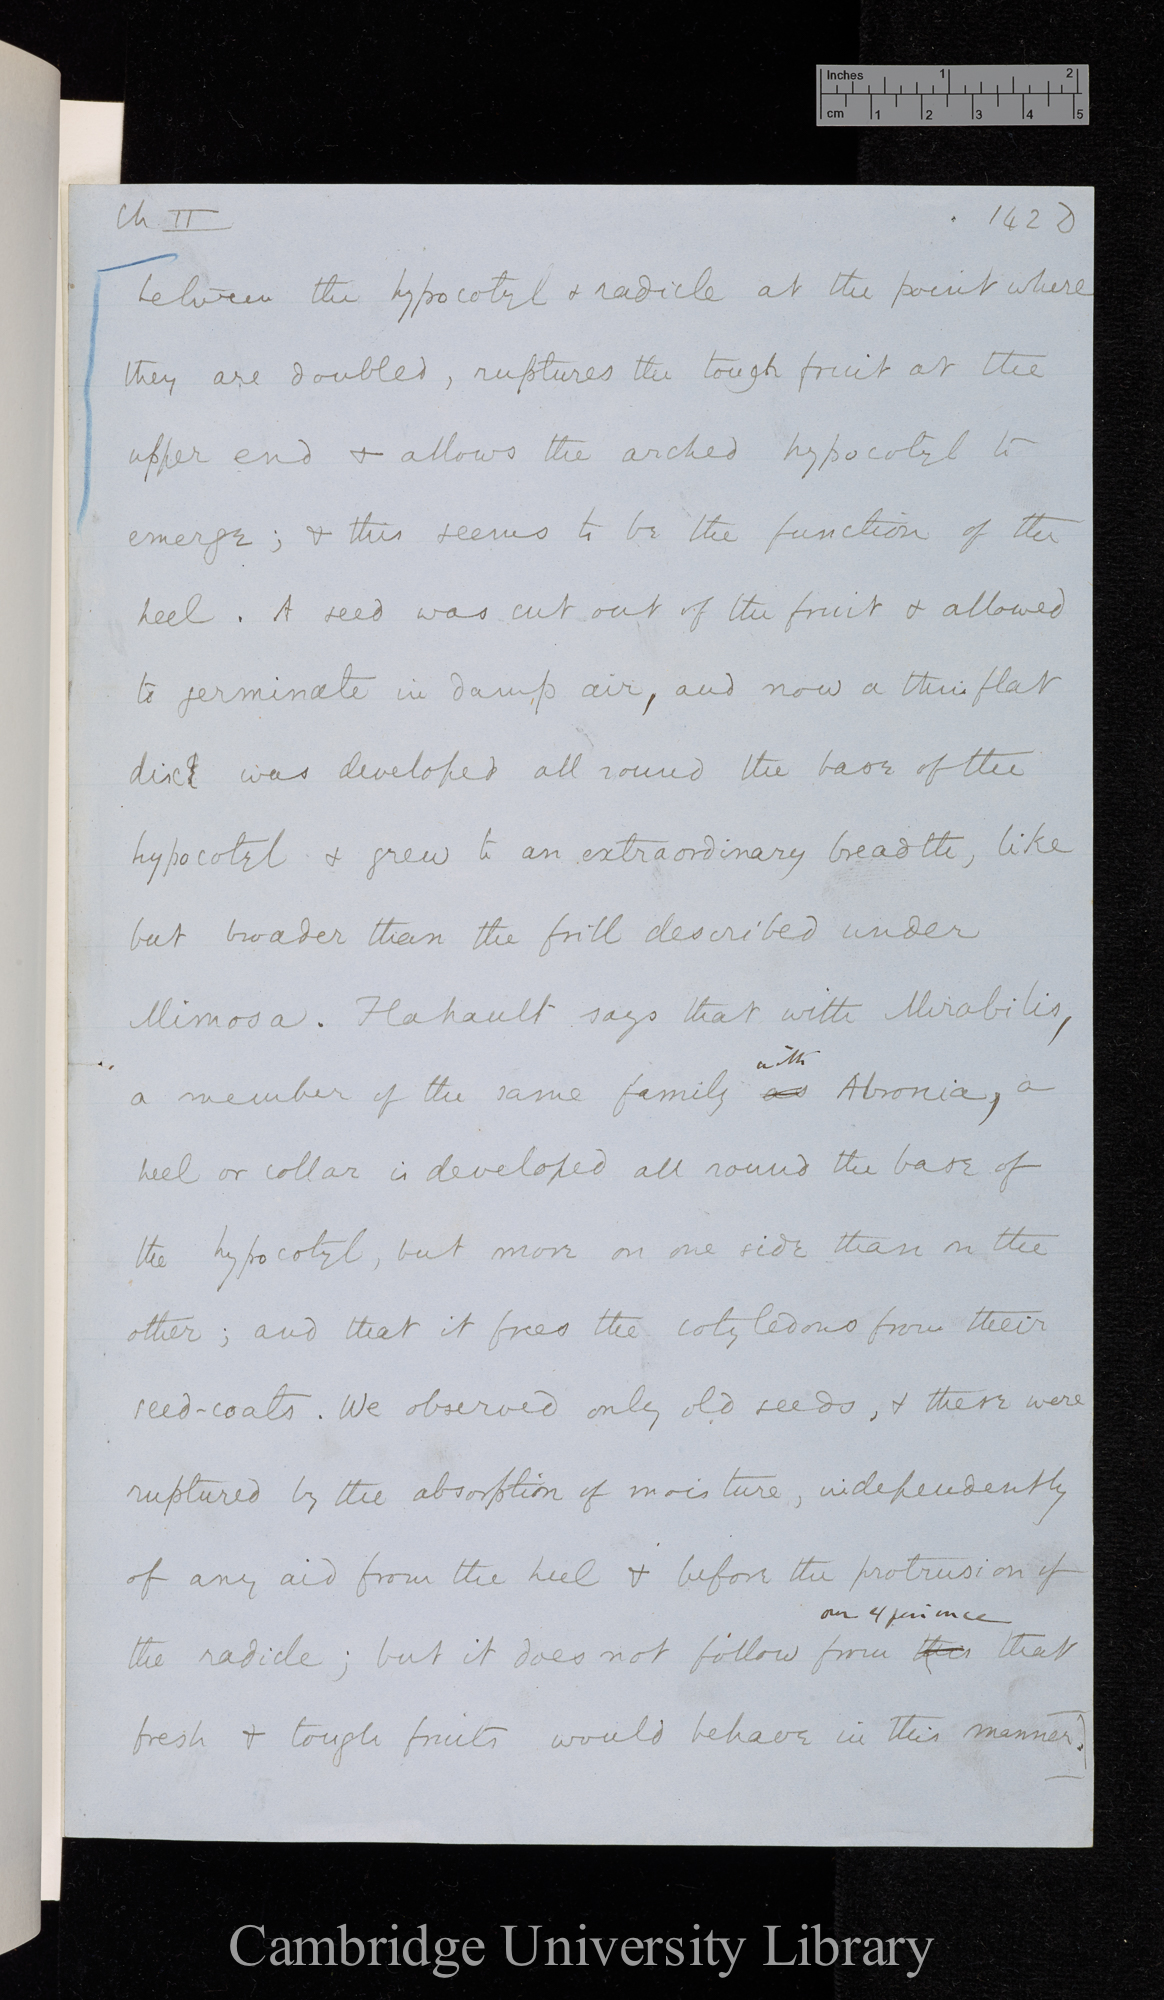 Inches 1 2
cm 1 2 3 4 5
Ch II 142 D
between the hypocotyl & radicle at the point where
they are doubled, ruptures the tough fruit at the
upper end & allows the arched hypocotyl to
emerge; & this seems to be the function of the
heel. A seed was cut out of the fruit & allowed
to germinate in damp air, and now a thin flat
disc was developed all round the base of the
hypocotyl & grew to an extraordinary breadth, like
but broader than the frill described under
Mimosa. Flahault says that with Mirabilis,
with
a member of the same family as Abronia, a
heel or collar is developed all round the base of
the hypocotyl, but more on one side than on the
other; and that it frees the cotyledons from their
seed-coats. We observed only old seeds, & these were
ruptured by the absorption of moisture, independently
of any aid from the heel & before the protrusion of
our experience
the radicle; but it does not follow from this that
fresh & tough fruits would behave in this manner.]
Cambridge University Library